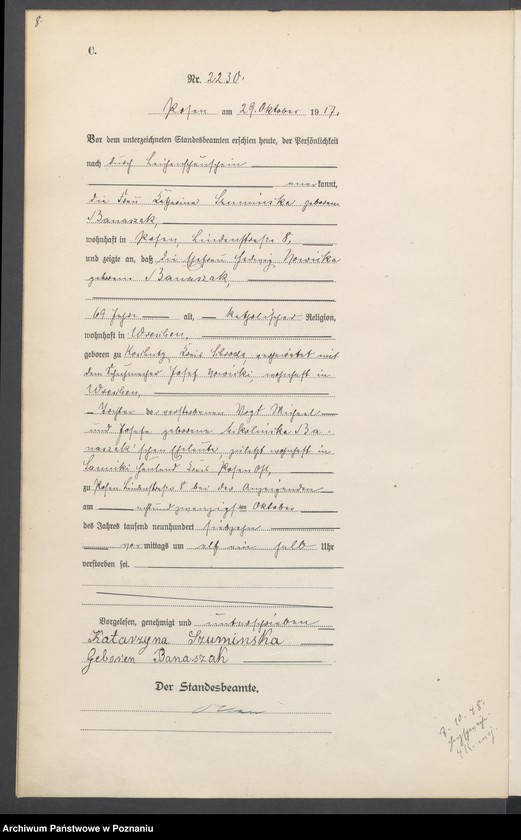 8.
C.
Nr. 2230.
Posen am 29. Oktober 1917.
Vor dem unterzeichneten Standesbeamten erschien heute, der Persönlichkeit
nach durch Leichenschauschein
anerkannt,
die Frau Katharina Szuminska geborene
Banaszak,
wohnhaft in Posen, Lindenstraße 8,
und zeigte an, daß die Ehefrau Hedwig Nowicka
geborene Banaszak,
69 Jahre alt, katholischer Religion,
wohnhaft in Wreschen,
geboren zu Kreis Schroda, verheiratet mit
dem Schuhmacher Josef Nowicki, wohnhaft in
Wreschen,
Tochter der verstorbenen Vogt Michael
und Josefa geborene Ba-
naszak'schen Eheleute, zuletzt wohnhaft in
Kreis Posen Ost,
zu Posen Lindenstraße 8 bei der Anzeigenden
am Oktober
des Jahres tausend neunhundert siebzehn
vormittags um elf ein halb Uhr
verstorben sei.
Vorgelesen, genehmigt und unterschrieben
Katarzyna Szuminska
Geboren Banaszak
Der Standesbeamte.
Archiwum Państwowe w Poznaniu